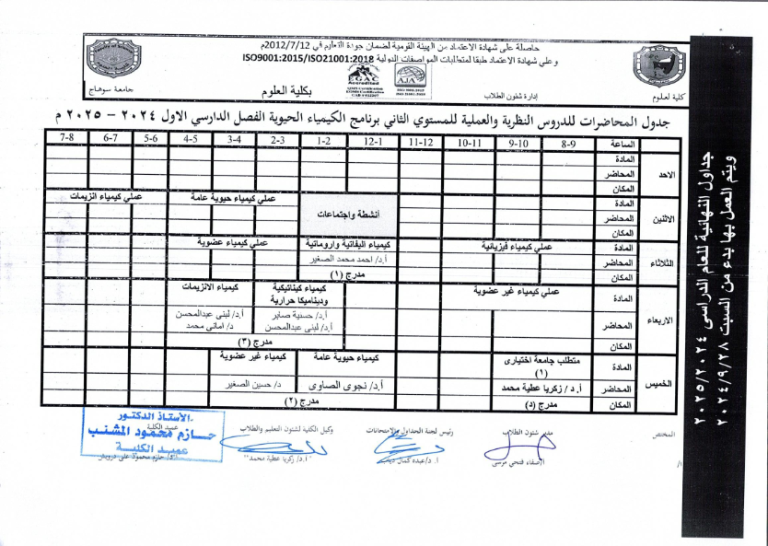 حاصلة على شهادة الاعتماد من الهيئة القومية لضمان جودة التعليم في 2012/7/12م
وعلى شهادة الاعتماد طبقا لمتطلبات المواصفات الدولية ISO9001:2015/ISO21001:2018
EGAC
Accredited
AJA
كلية العلوم
إدارة شئون الطلاب
بكلية العلوم
جامعة سوهاج
جدول المحاضرات للدروس النظرية والعملية للمستوي الثاني برنامج الكيمياء الحيوية الفصل الدارسي الاول ٢٠٢٤ - ٢٠٢٥ م
الساعة 8-9 9-10 10-11 11-12 12-1 1-2 2-3 3-4 4-5 5-6 6-7 7-8
الاحد
المادة
المحاضر
المكان
الاثنين
المادة عملي كيمياء حيوية عامة عملي كيمياء انزيمات
المحاضر أنشطة واجتماعات
المكان
الثلاثاء
المادة عملي كيمياء فيزيائية كيمياء اليفاتية واروماتية عملي كيمياء عضوية
المحاضر أ.د/ احمد محمد الصغير
المكان مدرج (١)
الاربعاء
المادة عملي كيمياء غير عضوية كيمياء كيناتيكية كيمياء الانزيمات
وديناميكا حرارية
المحاضر أ.د/ حسنية صابر أ.د/ لبنى عبدالمحسن
أ.د/ لبنى عبدالمحسن د/ اماني محمد
المكان مدرج (٣)
الخميس
المادة متطلب جامعة اختيارى كيمياء حيوية عامة كيمياء غير عضوية
(١)
المحاضر أ.د / زكريا عطية محمد أ.د/ نجوى الصاوى د/ حسين الصغير
المكان مدرج (د) مدرج (٢)
المختص
مدير شئون الطلاب
رئيس لجنة الجداول والامتحانات
وكيل الكلية لشئون التعليم والطلاب
عميد الكلية
الأستاذ الدكتور
حازم محمود المشنب
عميد الكلية
أ.د/ زكريا عطية محمد
جداول النهائية للعام الدراسى ٢٠٢٥/٢٠٢٤
ويتم العمل بها بدء من السبت ٢٠٢٤/٩/٢٨